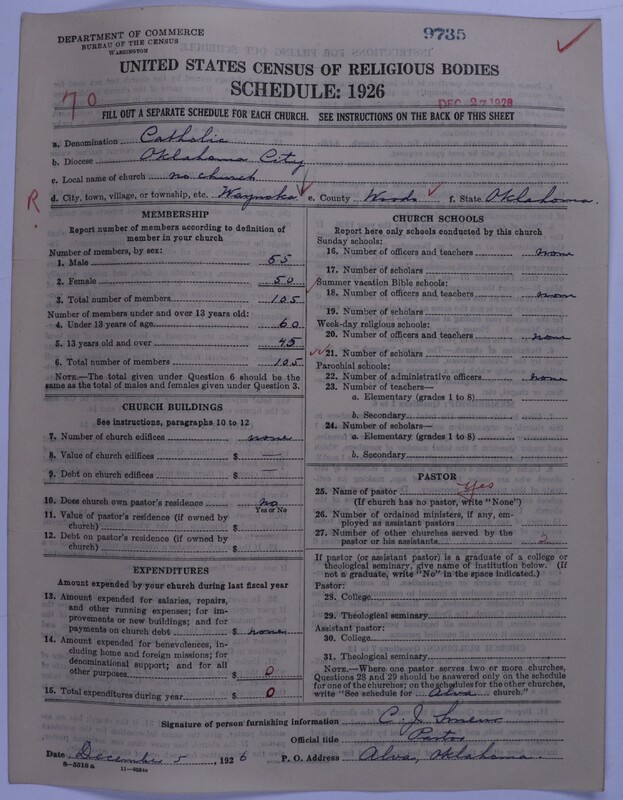 DEPARTMENT OF COMMERCE
BUREAU OF THE CENSUS
WASHINGTON
9735
UNITED STATES CENSUS OF RELIGIOUS BODIES
SCHEDULE: 1926
70
DEC 27 1926
FILL OUT A SEPARATE SCHEDULE FOR EACH CHURCH. SEE INSTRUCTIONS ON THE BACK OF THIS SHEET
a. Denomination Catholic
b. Diocese Oklahoma City
c. Local name of church no church
R d. City, town, village, or township, etc. Waynoka e. County Woods f. State Oklahoma.
MEMBERSHIP
Report number of members according to definition of member in your church
Number of members, by sex:
1. Male 55
2. Female 50
3. Total number of members 105
Number of members under and over 13 years old:
4. Under 13 years of age 60
5. 13 years old and over 45
6. Total number of members 105
NOTE.—The total given under Question 6 should be the same as the total of males and females given under Question 3.
CHURCH BUILDINGS
See instructions, paragraphs 10 to 12
7. Number of church edifices none
8. Value of church edifices $ —
9. Debt on church edifices $ —
10. Does church own pastor's residence no
Yes or No
11. Value of pastor's residence (if owned by church) $
12. Debt on pastor's residence (if owned by church) $
EXPENDITURES
Amount expended by your church during last fiscal year
13. Amount expended for salaries, repairs, and other running expenses; for improvements or new buildings; and for payments on church debt $ none
14. Amount expended for benevolences, including home and foreign missions; for denominational support; and for all other purposes $ 0
15. Total expenditures during year $ 0
CHURCH SCHOOLS
Report here only schools conducted by this church
Sunday schools:
16. Number of officers and teachers none
17. Number of scholars
Summer vacation Bible schools:
18. Number of officers and teachers none
19. Number of scholars
Week-day religious schools:
20. Number of officers and teachers none
21. Number of scholars
Parochial schools:
22. Number of administrative officers none
23. Number of teachers—
a. Elementary (grades 1 to 8)
b. Secondary
24. Number of scholars—
a. Elementary (grades 1 to 8)
b. Secondary
PASTOR
25. Name of pastor Yes
(If church has no pastor, write "None")
26. Number of ordained ministers, if any, employed as assistant pastors
27. Number of other churches served by the pastor or his assistants
If pastor (or assistant pastor) is a graduate of a college or theological seminary, give name of institution below. (If not a graduate, write "No" in the space indicated.)
Pastor:
28. College
29. Theological seminary
Assistant pastor:
30. College
31. Theological seminary
NOTE.—Where one pastor serves two or more churches, Questions 28 and 29 should be answered only on the schedule for one of the churches; on the schedules for the other churches, write "See schedule for Alva church."
Signature of person furnishing information C. J.
Official title Pastor
Date December 5, 1926 P. O. Address Alva, Oklahoma.
8-5518 a